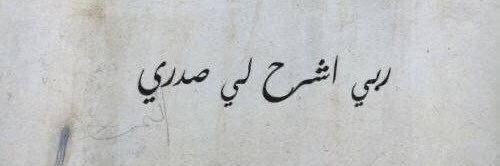 ربي اشرح لي صدري